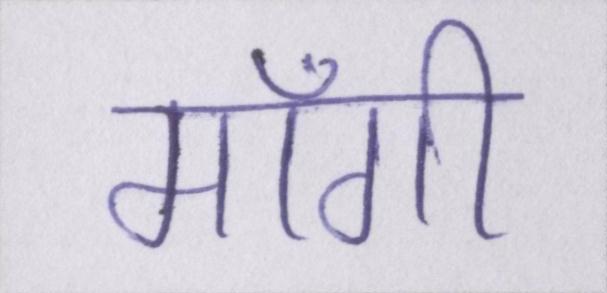 माँगी